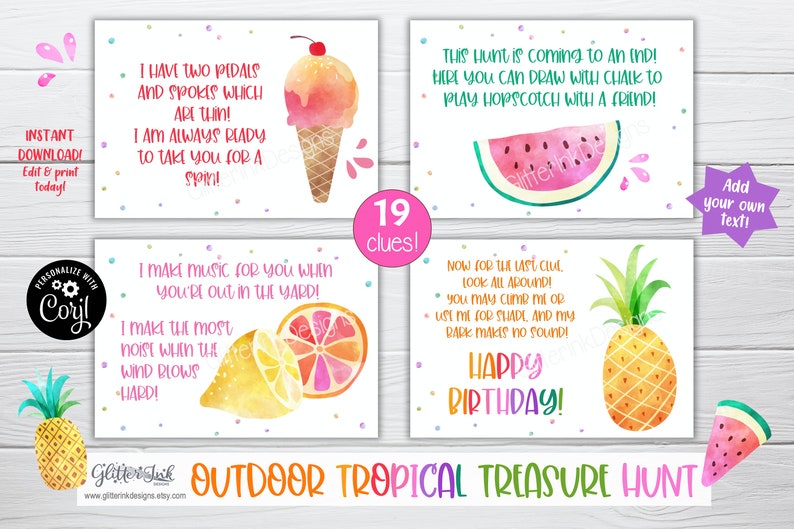 I HAVE TWO PEDALS
AND SPOKES WHICH
ARE THIN!
I AM ALWAYS READY
TO TAKE YOU FOR A
SPIN!
THIS HUNT IS COMING TO AN END!
HERE YOU CAN DRAW WITH CHALK TO
PLAY HOPSCOTCH WITH A FRIEND!
INSTANT
DOWNLOAD!
Edit & print
today!
19
clues!
Add
your own
text!
PERSONALIZE WITH
Corjl
I MAKE MUSIC FOR YOU WHEN
YOU'RE OUT IN THE YARD!
I MAKE THE MOST
NOISE WHEN THE
WIND BLOWS
HARD!
NOW FOR THE LAST CLUE,
LOOK ALL AROUND!
YOU MAY CLIMB ME OR
USE ME FOR SHADE, AND MY
BARK MAKES NO SOUND!
HAPPY
BIRTHDAY!
GlitterInk
DESIGNS
www.glitterinkdesigns.etsy.com
OUTDOOR TROPICAL TREASURE HUNT
GlitterInkDesigns
GlitterInkDesigns
GlitterInkDesigns
GlitterInkDesigns